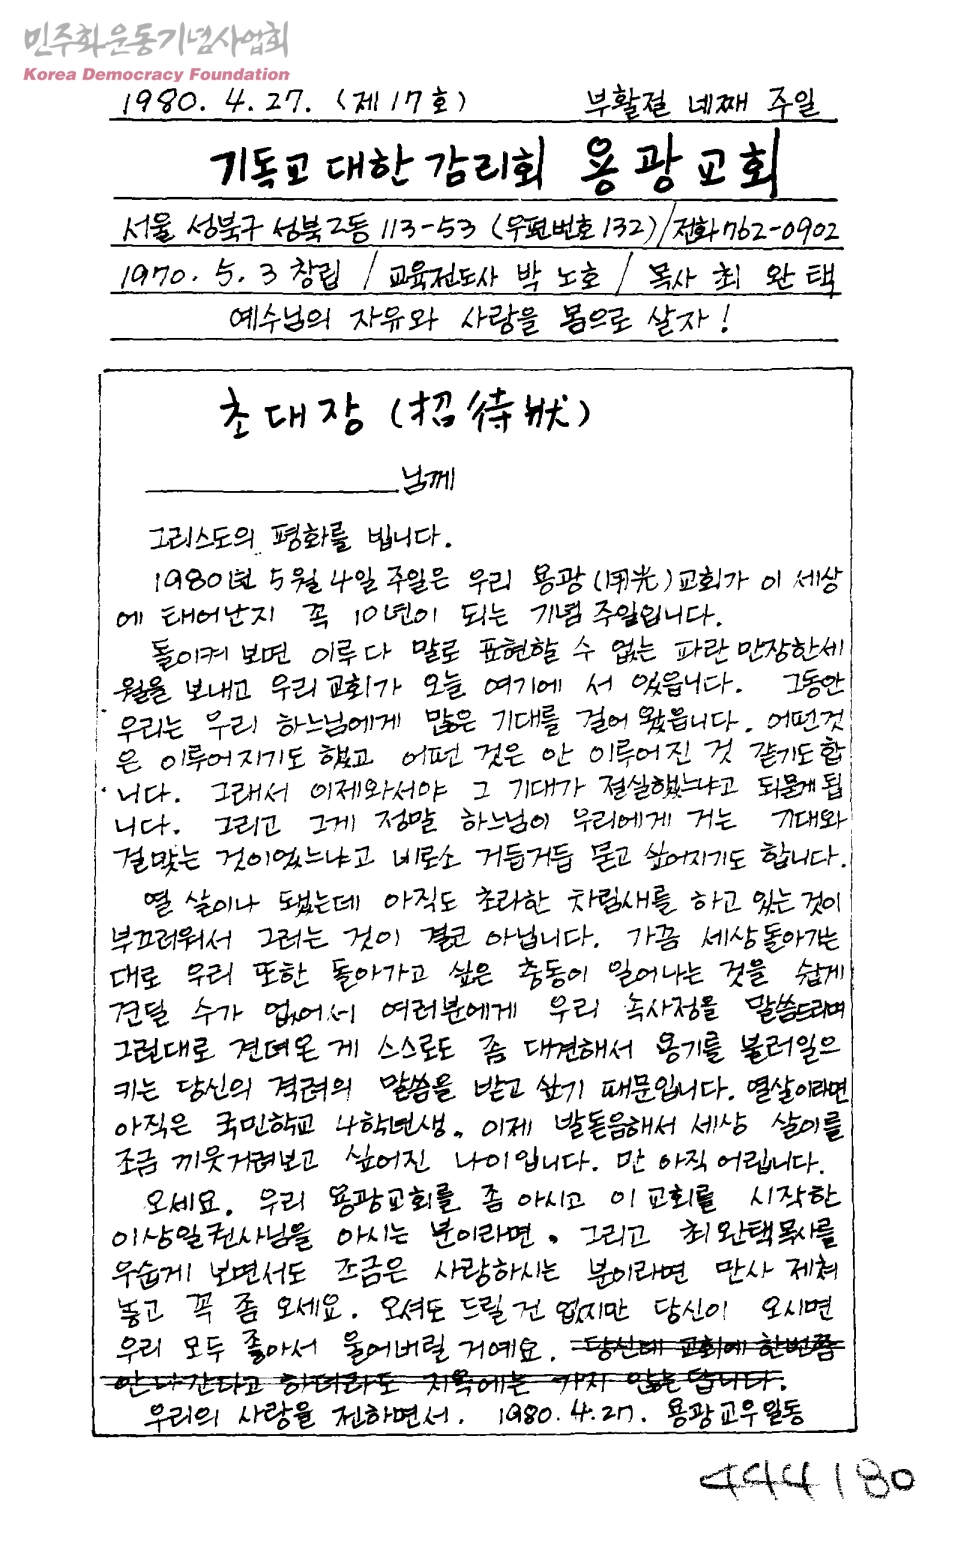 민주화운동기념사업회
Korea Democracy Foundation
1980. 4. 27. (제17호) 부활절 네째 주일
기독교 대한 감리회 용광교회
서울 성북구 성북2동 113-53 (우편번호 132)/전화762-0902
1970. 5. 3 창립 / 교육전도사 박 노호 / 목사 최 완 택
예수님의 자유와 사랑을 몸으로 살자!
초대장 (招待狀)
님께
그리스도의 평화를 빕니다.
1980년 5월 4일 주일은 우리 용광( 光)교회가 이 세상
에 태어난지 꼭 10년이 되는 기념 주일입니다.
돌이켜 보면 이루 다 말로 표현할 수 없는 파란 만장한 세
월을 보내고 우리 교회가 오늘 여기에 서 있읍니다. 그동안
우리는 우리 하느님에게 많은 기대를 걸어 왔읍니다. 어떤것
은 이루어지기도 했고 어떤 것은 안 이루어진 것 같기도 합
니다. 그래서 이제와서야 그 기대가 절실했느냐고 되묻게 됩
니다. 그리고 그게 정말 하느님이 우리에게 거는 기대와
걸맞는 것이었느냐고 비로소 거듭거듭 묻고 싶어지기도 합니다.
열 살이나 됐는데 아직도 초라한 차림새를 하고 있는 것이
부끄러워서 그러는 것이 결코 아닙니다. 가끔 세상 돌아가는
대로 우리 또한 돌아가고 싶은 충동이 일어나는 것을 쉽게
견딜 수가 없어서 여러분에게 우리 속사정을 말씀드리며
그런대로 견뎌온 게 스스로도 좀 대견해서 용기를 불러일으
키는 당신의 격려의 말씀을 받고 싶기 때문입니다. 열살이라면
아직은 국민학교 4학년생. 이제 발돋음해서 세상 살이를
조금 끼웃거려보고 싶어진 나이입니다. 만 아직 어립니다.
오세요. 우리 용광교회를 좀 아시고 이 교회를 시작한
이상일권사님을 아시는 분이라면. 그리고 최완택목사를
우습게 보면서도 조금은 사랑하시는 분이라면 만사 제쳐
놓고 꼭 좀 오세요. 오셔도 드릴 건 없지만 당신이 오시면
우리 모두 좋아서 울어버릴 거예요. 당신네 교회에 한번쯤
안 나간다고 하더라도 지옥에는 가지 않는답니다.
우리의 사랑을 전하면서. 1980. 4. 27. 용광교우일동
444180